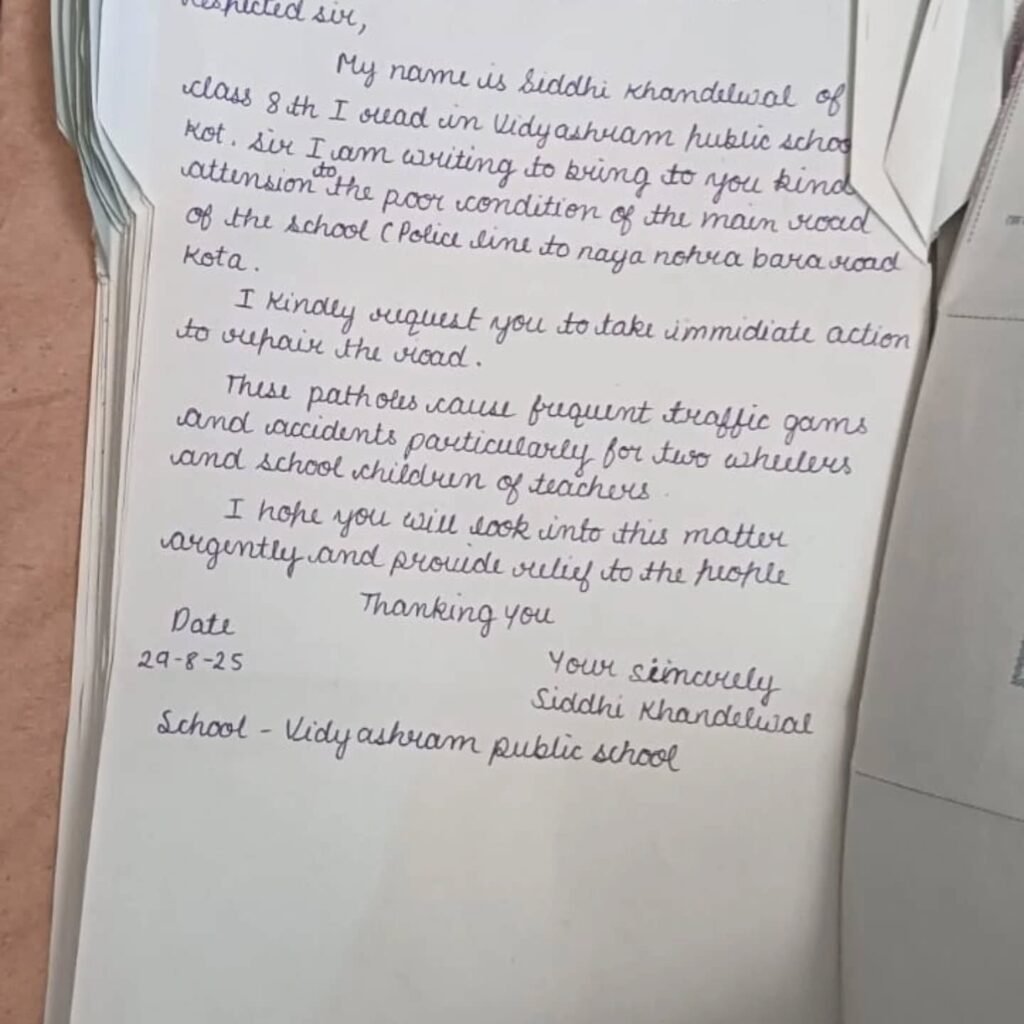 Respected sir,
My name is Siddhi Khandelwal of
class 8th I read in Vidyashram public schoo
Kot. Sir I am writing to bring to you kind
attension to the poor condition of the main road
of the school (Police line to naya nohra bara road
Kota.
I Kindly request you to take immidiate action
to repair the road.
These patholes cause frequent traffic gams
and accidents particularly for two wheelers
and school children of teachers.
I hope you will look into this matter
argently and provide relief to the people
Thanking you
Date
29-8-25
Your simcurely
Siddhi Khandelwal
School - Vidyashram public school